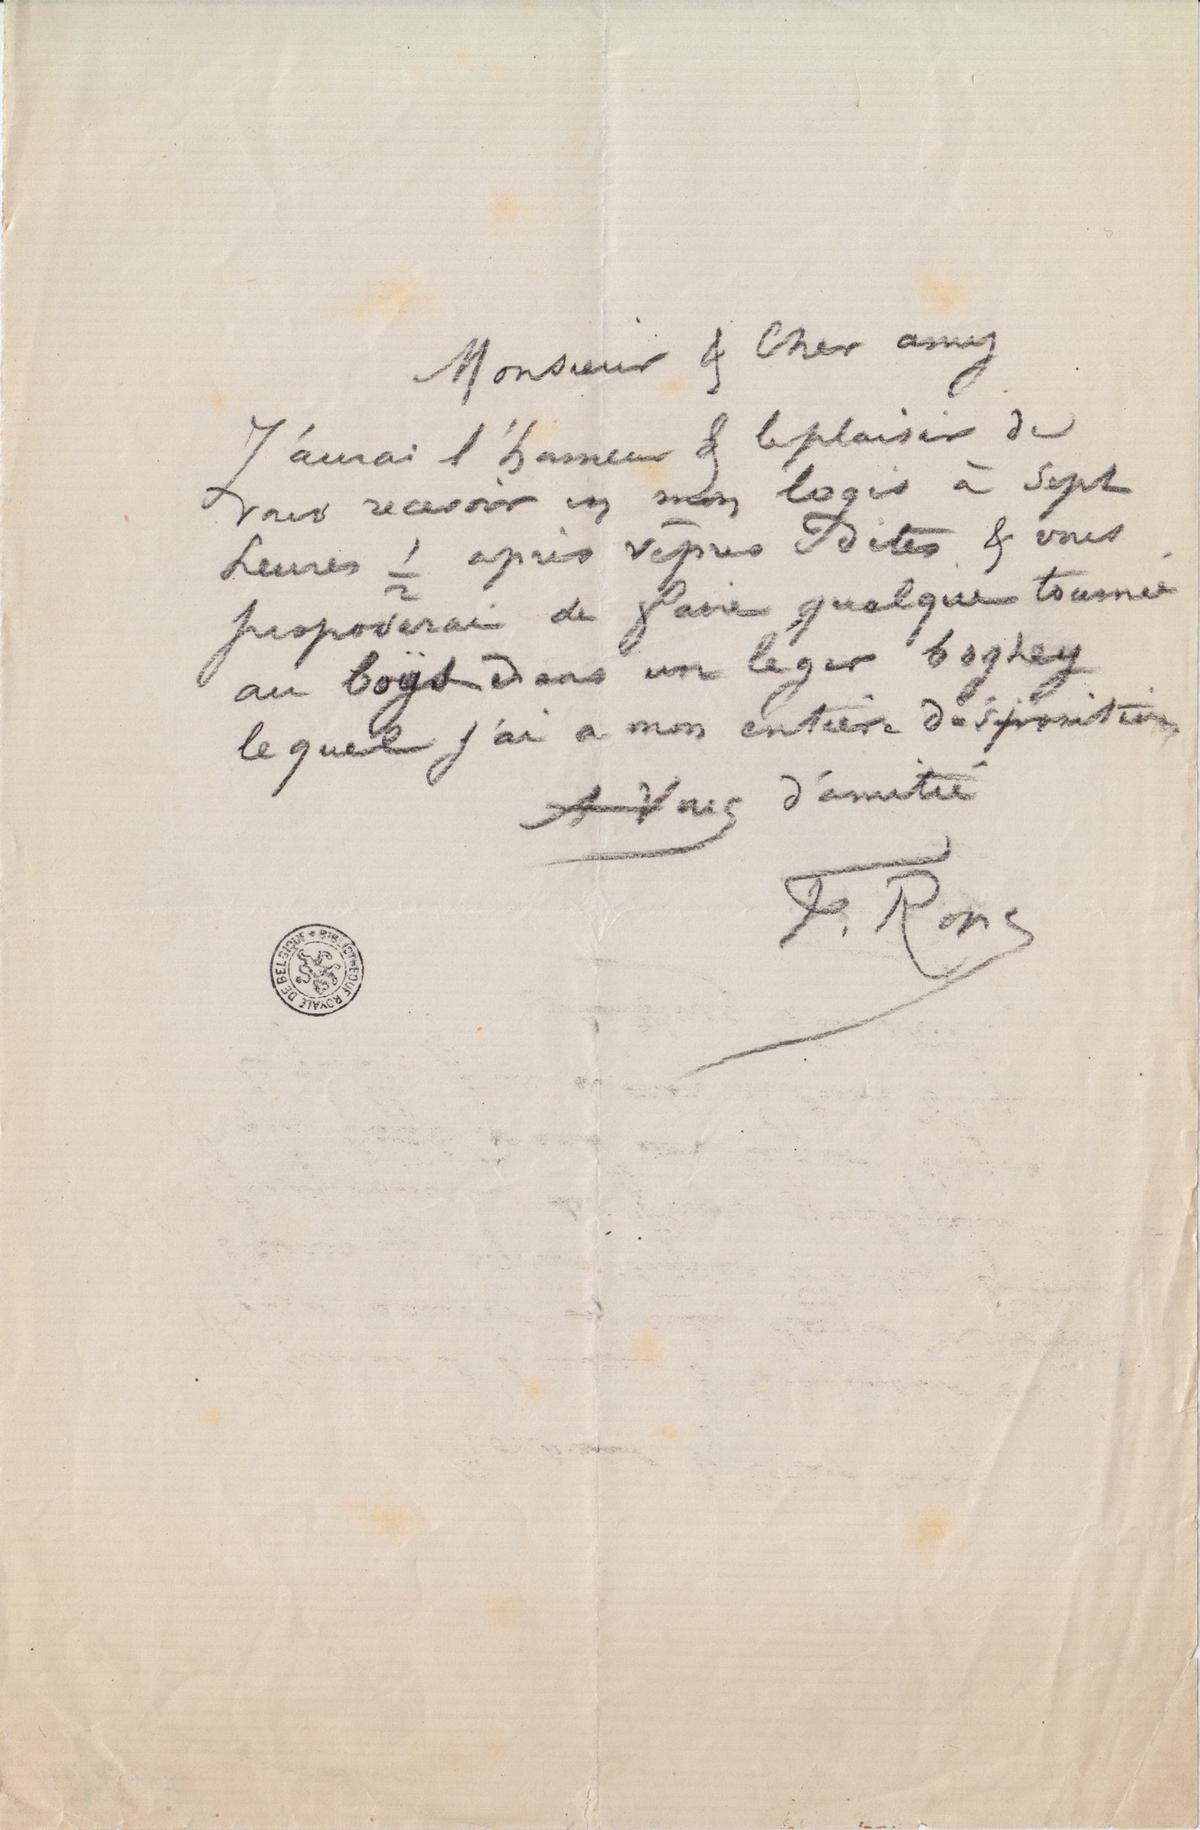 Monsieur & Cher amy
J'aurai l'honneur & le plaisir de
vous recevoir en mon logis à Sept
heures 1/2 après vêpres Dites & vous
proposerai de faire quelque tournée
au boÿs dans un leger boghey
lequel j'ai a mon entière disposition
A Vous d'amitié
F. Rops
BIBLIOTHEQUE ROYALE DE BELGIQUE